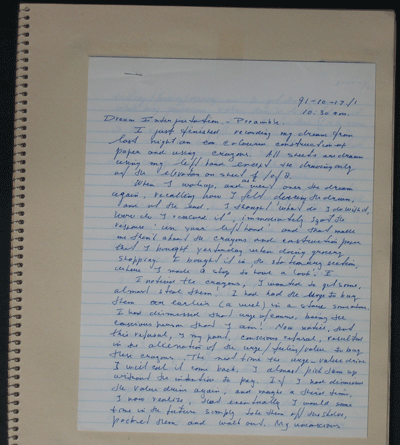 91-10-13/1
10:30 am.
Dream Interpretation - Preamble
I just finished recording my dream from
last night on coloured construction
paper and using crayons. All sheets are drawn
using my left hand except the drawing only
of the elevator on sheet # 6/8.
When I wokeup, and went over the dream
again, recalling how I felt during the dream,
and at the end, I thought 'What do I do with it,
how do I record it', immediately I got the
response 'use your left hand' and that made
me think about the crayons and construction paper
that I bought yesterday when doing grocery
shopping. I bought it in the stationary section,
where I made a stop to have a look. I
I noticed the crayons, I wanted to get some,
almost stole them! I had had the urge to buy
them earlier (a week) in a store somewhere.
I had dismissed that urge of course, being the
conscious person that I am! Now notice, that
this refusal, on my part, conscious refusal, resulted
in the alternation of the urge/feeling/value to buy
these crayons. The next time the urge-value drive
I will call it came back, I almost picked them up
without the intention to pay. If I had dismissed
the value drive again, and maybe a third time,
I now realize, that eventually I would some
time in the future simply take them off the shelves,
pocket them and walk out. My unconscious